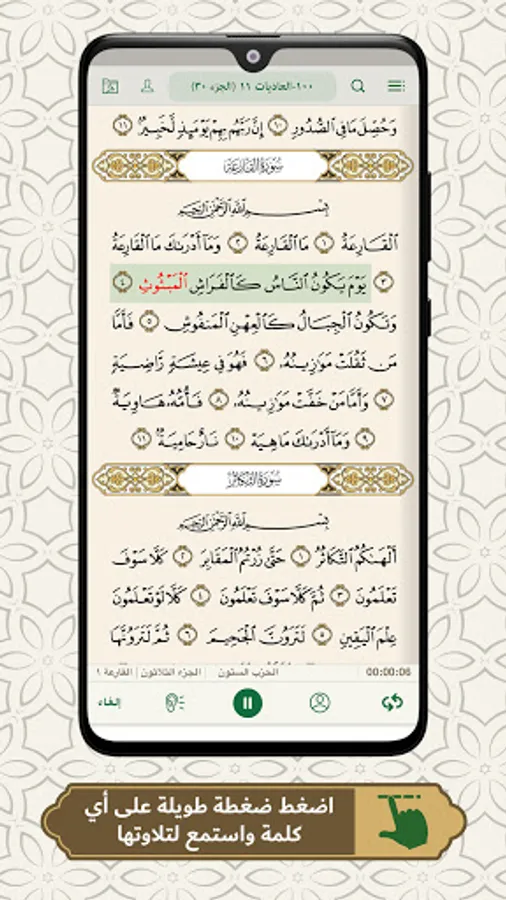 ١٠٠-العاديات ١١ (الجزء ٣٠)
وَحُصِّلَ مَا فِي ٱلصُّدُورِ ١٠ إِنَّ رَبَّهُم بِهِمْ يَوْمَئِذٍ لَّخَبِيرٌۢ ١١
سُورَةُ القَارِعَة
بِسْمِ ٱللَّهِ ٱلرَّحْمَٰنِ ٱلرَّحِيمِ
ٱلْقَارِعَةُ ١ مَا ٱلْقَارِعَةُ ٢ وَمَآ أَدْرَىٰكَ مَا ٱلْقَارِعَةُ
٣ يَوْمَ يَكُونُ ٱلنَّاسُ كَٱلْفَرَاشِ ٱلْمَبْثُوثِ ٤
وَتَكُونُ ٱلْجِبَالُ كَٱلْعِهْنِ ٱلْمَنفُوشِ ٥ فَأَمَّا
مَن ثَقُلَتْ مَوَٰزِينُهُۥ ٦ فَهُوَ فِي عِيشَةٍ رَّاضِيَةٍ
٧ وَأَمَّا مَنْ خَفَّتْ مَوَٰزِينُهُۥ ٨ فَأُمُّهُۥ هَاوِيَةٌ
٩ وَمَآ أَدْرَىٰكَ مَا هِيَهْ ١٠ نَارٌ حَامِيَةٌۢ ١١
سُورَةُ التَّكَاثُر
بِسْمِ ٱللَّهِ ٱلرَّحْمَٰنِ ٱلرَّحِيمِ
أَلْهَىٰكُمُ ٱلتَّكَاثُرُ ١ حَتَّىٰ زُرْتُمُ ٱلْمَقَابِرَ ٢ كَلَّا سَوْفَ
تَعْلَمُونَ ٣ ثُمَّ كَلَّا سَوْفَ تَعْلَمُونَ ٤ كَلَّا لَوْ تَعْلَمُونَ
عِلْمَ ٱلْيَقِينِ ٥ لَتَرَوُنَّ ٱلْجَحِيمَ ٦ ثُمَّ لَتَرَوُنَّهَا
القارعة ١ | الجزء الثلاثون | الحزب الستون 00:00:06
إلغاء
اضغط ضغطة طويلة على أي
كلمة واستمع لتلاوتها